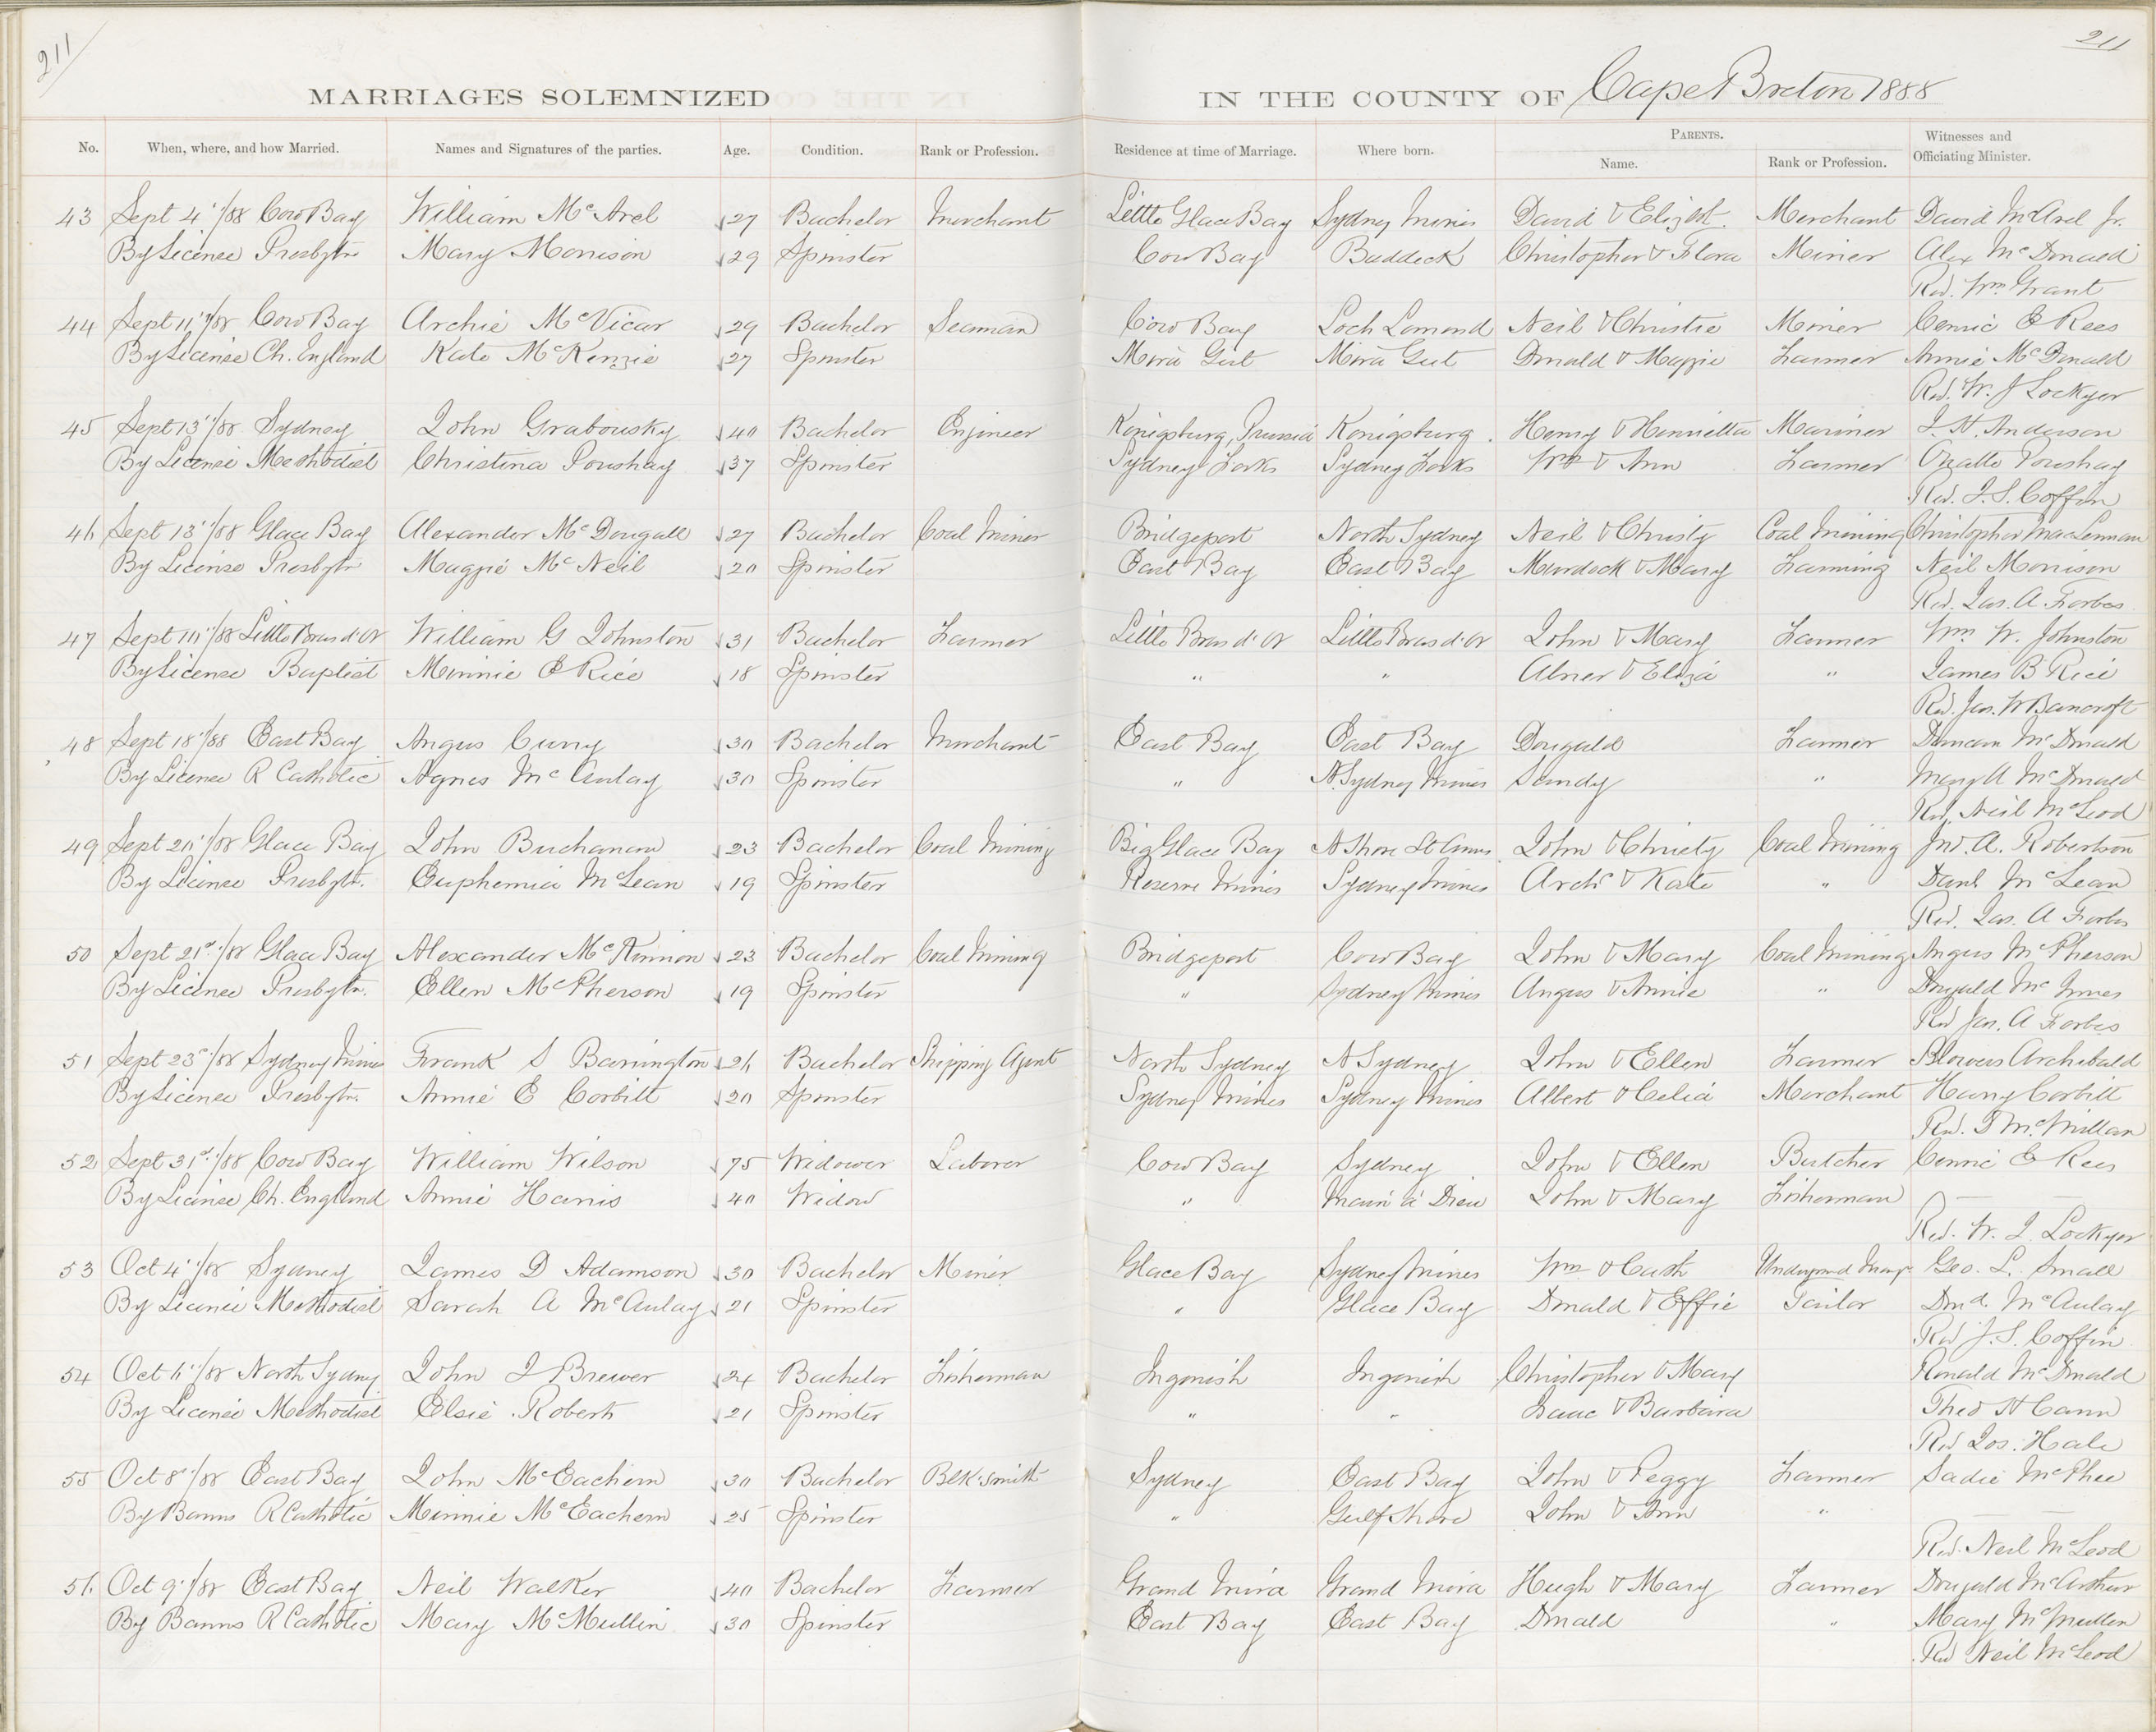 211
211
MARRIAGES SOLEMNIZED IN THE COUNTY OF Cape Breton 1888
No. When, where, and how Married. Names and Signatures of the parties. Age. Condition. Rank or Profession. Residence at time of Marriage. Where born. PARENTS. Name. Rank or Profession. Witnesses and Officiating Minister.
43 Sept 4"/88 Cow Bay William McArel 27 Bachelor Merchant Little Glace Bay Sydney Mines David & Elizbt. Merchant David McArel Jr.
By License Presbytn Mary Morrison 29 Spinster Cow Bay Baddeck Christopher & Flora Miner Alex McDonald
Rev. Wm Grant
44 Sept 11"/88 Cow Bay Archie McVicar 29 Bachelor Seaman Cow Bay Loch Lomond Neil & Christie Miner Cennie E Rees
By License Ch. England Kate McKenzie 27 Spinster Mira Gut Mira Gut Donald & Maggie Farmer Annie McDonald
Rev. W. J Lockyer
45 Sept 13"/88 Sydney John Grabousky 40 Bachelor Engineer Konigsburg, Prussia Konigsburg. Henry & Henrietta Mariner J. H. Anderson
By License Methodist Christina Poushay 37 Spinster Sydney Forks Sydney Forks Wm & Ann Farmer Poushay
Rev. J. S. Coffin
46 Sept 13"/88 Glace Bay Alexander McDougall 27 Bachelor Coal Miner Bridgeport North Sydney Neil & Christy Coal Mining Christopher MacLennan
By License Presbytn Maggie McNeil 20 Spinster East Bay East Bay Murdock & Mary Farming Neil Morrison
Rev. Jas. A Forbes
47 Sept /88 Little Bras d'Or William G Johnston 31 Bachelor Farmer Little Bras d'Or Little Bras d'Or John & Mary Farmer Wm W. Johnston
By License Baptist Minnie E Rice 18 Spinster " " Abner & Eliza " James B Rice
Rev. Jas. W Bancroft
48 Sept 18"/88 East Bay Angus Curry 30 Bachelor Merchant East Bay East Bay Dougald Farmer Duncan McDonald
By License R Catholic Agnes McAulay 30 Spinster " N. Sydney Mines Sandy " Mary A McDonald
Rev. Neil McLeod
49 Sept 20"/88 Glace Bay John Buchanan 23 Bachelor Coal Mining Big Glace Bay N Shore St Anns John & Christy Coal Mining Jno. A. Robertson
By License Presbytn. Euphemia McLean 19 Spinster Reserve Mines Sydney Mines Archd & Kate " Danl McLean
Rev. Jas. A Forbes
50 Sept 21st/88 Glace Bay Alexander McKinnon 23 Bachelor Coal Mining Bridgeport Cow Bay John & Mary Coal Mining Angus McPherson
By License Presbytn. Ellen McPherson 19 Spinster " Sydney Mines Angus & Annie " Dugald McInnes
Rev Jas. A Forbes
51 Sept 23d/88 Sydney Mines Frank S Barrington 26 Bachelor Shipping Agent North Sydney N Sydney John & Ellen Farmer Blowers Archibald
By License Presbytn. Annie E Corbitt 20 Spinster Sydney Mines Sydney Mines Albert & Celia Merchant Harry Corbitt
Rev. D McMillan
52 Sept 31st/88 Cow Bay William Wilson 75 Widower Laborer Cow Bay Sydney John & Ellen Butcher Cennie E Rees
By License Ch. England Annie Harris 40 Widow " Main á Dieu John & Mary Fisherman —
Rev. W. J. Lockyer
53 Oct 4"/88 Sydney James D Adamson 30 Bachelor Miner Glace Bay Sydney Mines Wm & Cath Undergrnd Mangr Geo. L. Small
By License Methodist Sarah A McAulay 21 Spinster " Glace Bay Donald & Effie Tailor Dond. McAulay
Rev J. S. Coffin
54 Oct 6"/88 North Sydney John J Brewer 24 Bachelor Fisherman Ingonish Ingonish Christopher & Mary Ronald McDonald
By License Methodist Elsie Robert 21 Spinster " " Isaac & Barbara Theo H Cann
Rev Jos. Hale
55 Oct 8"/88 East Bay John McEachern 30 Bachelor Blk.smith Sydney East Bay John & Peggy Farmer Sadie McPhee
By Banns R Catholic Minnie McEachern 25 Spinster " Gulf Shore John & Ann " —
Rev. Neil McLeod
56 Oct 9"/88 East Bay Neil Walker 40 Bachelor Farmer Grand Mira Grand Mira Hugh & Mary Farmer Dougald McArthur
By Banns R Catholic Mary McMullin 30 Spinster East Bay East Bay Donald " Mary McMullen
Rev Neil McLeod